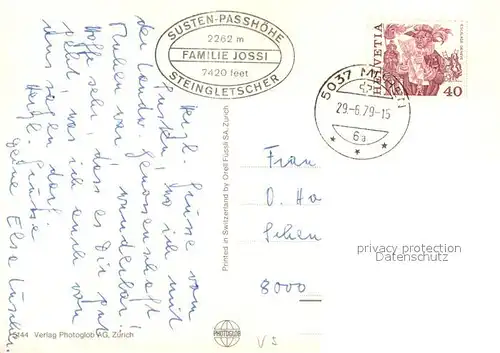 SUSTEN-PASSHÖHE
2262 m
FAMILIE JOSSI
7420 feet
STEINGLETSCHER
HELVETIA
40
5037 MUHEN
29.-6.79-15
6a
Herzl. Grüsse vom
Susten, wo ich mit
der Landw. Genossenschaft
Muhen war! wunderbar!
Hoffe sehr, dass es Dir gut
geht, was ich auch von
uns sagen darf.
Herzl. Grüsse
Deine Elsa
Frau
O. Ha
Schen
8000
Printed in Switzerland by Orell Füssli SA. Zürich
privacy protection
Datenschutz
5144 Verlag Photoglob AG, Zürich
PHOTOGLOB
VS